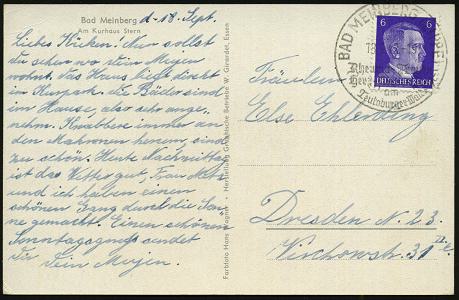 Bad Meinberg
Am Kurhaus Stern
d. 18. Sept.
Liebes Küken. Nun sollst
Du sehen wo Dein Mojen
wohnt. Das Haus liegt direkt
im Kurpark. Die Bäder sind
im Hause, also sehr ange-
nehm. Knabbere immer an
den Makronen herum, sind
zu schön. Heute Nachmittag
ist das Wetter gut, Frau
und ich haben einen
schönen Gang durch die Son-
ne gemacht. Einen schönen
Sonntagsgruß sendet
Dir Dein Mojen.
Farbfoto Hans Wagner • Herstellung Graphische Betriebe W. Girardet, Essen
BAD MEINBERG
18
am
Teutoburgerwald
6 6
DEUTSCHES REICH
Fräulein
Else Ehlerding
Dresden N. 23.
Virchowstr. 31